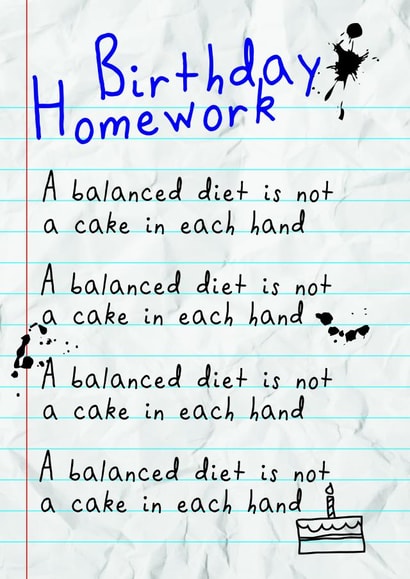 Birthday
Homework
A balanced diet is not
a cake in each hand
A balanced diet is not
a cake in each hand
A balanced diet is not
a cake in each hand
A balanced diet is not
a cake in each hand